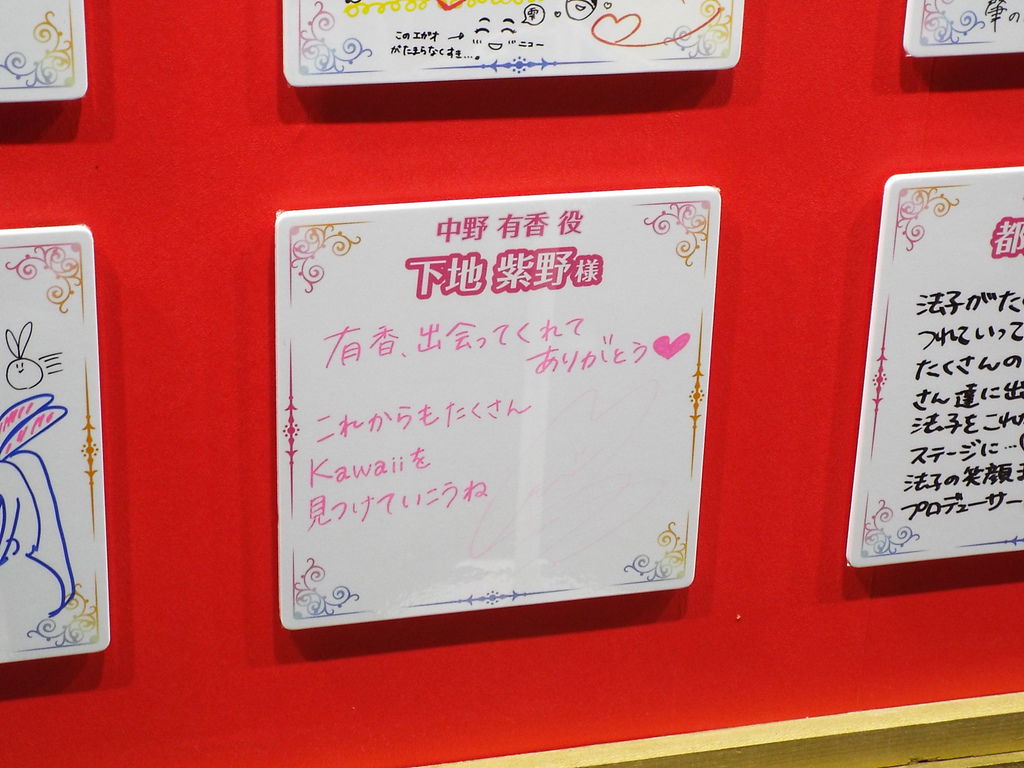 このエガオ
がたまらなくすき…。
ニュー
中野 有香 役
下地 紫野様
有香、出会ってくれて
ありがとう
これからもたくさん
Kawaiiを
見つけていこうね
都
法子がた
つれていって
たくさんの
さん達に出
法子をこれ
ステージに…
法子の笑顔
プロデューサー